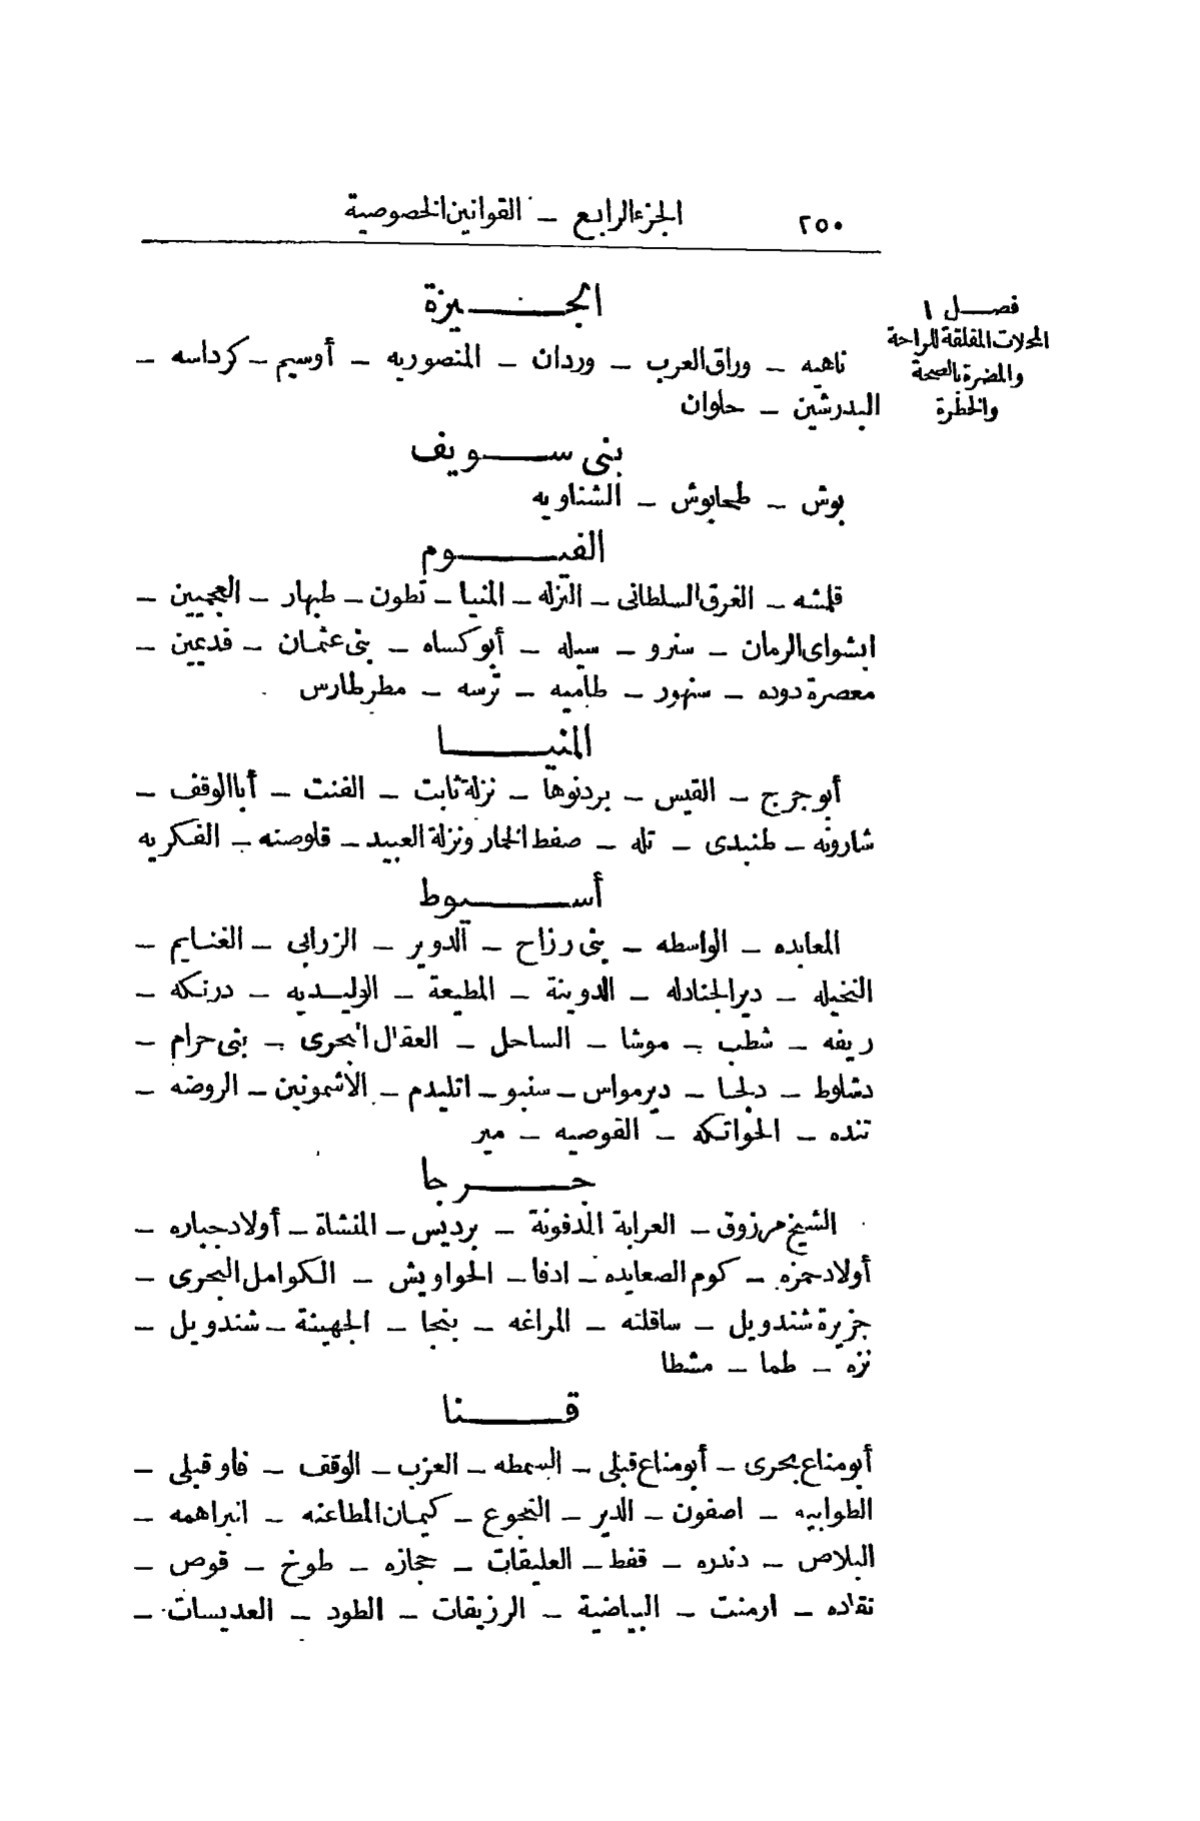 ٢٥٠
الجزء الرابع – القوانين الخصوصية
فصل ١
المحلات المقلقة للراحة
والمضرة بالصحة
والخطرة
الجيزة
ناهيه – وراق العرب – وردان – المنصوريه – أوسيم – كرداسه –
البدرشين – حلوان
بنى سويف
بوش – طحابوش – الشناويه
الفيوم
قلمشه – الغرق السلطانى – النزله – المنيا – تطون – طبهار – العجميين –
ابشواى الرمان – سنرو – سيله – أبوكساه – بنى عثمان – فديمين –
معصرة دوده – سنهور – طاميه – ترسه – مطرطارس
المنيا
أبو جرج – القيس – بردنوها – نزلة ثابت – الفنت – أبا الوقف –
شارونه – طنبدى – تله – صفط الخمار ونزلة العبيد – قلوصنه – الفكريه
أسيوط
المعابده – الواسطه – بنى رزاح – الدوير – الزرابى – الغنايم –
النخيله – دير الجنادله – الدوينة – المطيعة – الوليديه – درنكه –
ريفه – شطب – موشا – الساحل – العقال البحرى – بنى حرام –
دشلوط – دلجا – ديرمواس – سنبو – اتليدم – الأشمونين – الروضه –
تنده – الحواتكه – القوصيه – مير
جرجا
الشيخ مرزوق – العرابة المدفونة – برديس – المنشاة – أولاد جباره –
أولاد حمزه – كوم الصعايده – ادفا – الحواويش – الكوامل البحرى –
جزيرة شندويل – ساقلته – المراغه – بنجا – الجهينة – شندويل –
نزه – طما – مشطا
قنا
أبومناع بحرى – أبومناع قبلى – السمطه – العزب – الوقف – فاو قبلى –
الطوابيه – اصفون – الدير – النجوع – كيمان المطاعنه – انبراهمه –
البلاص – دندره – قفط – العليقات – حجازه – طوخ – قوص –
نقاده – ارمنت – البياضية – الرزيقات – الطود – العديسات –